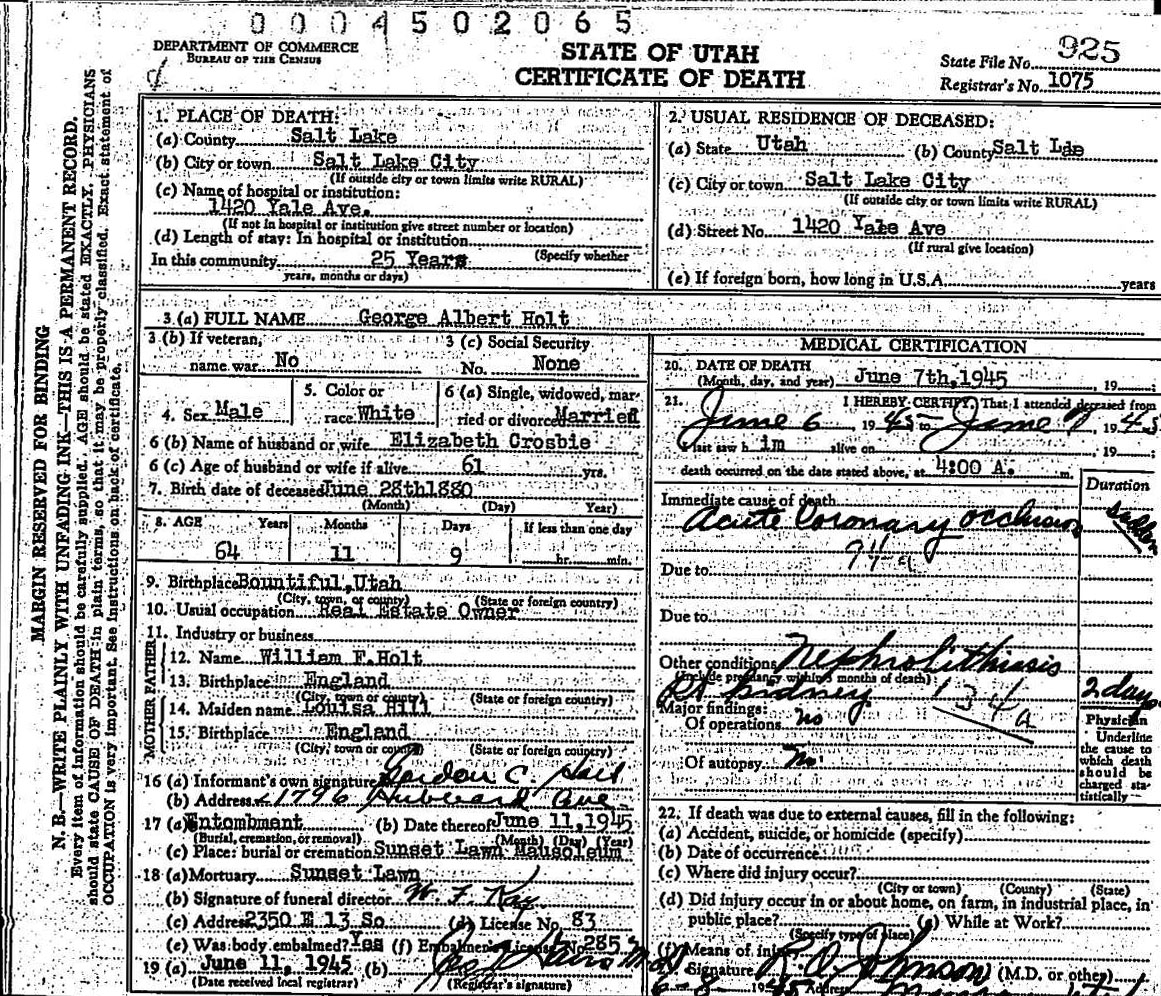 0004502065
DEPARTMENT OF COMMERCE
BUREAU OF THE CENSUS
STATE OF UTAH
CERTIFICATE OF DEATH
State File No. 925
Registrar's No. 1075
MARGIN RESERVED FOR BINDING
N. B.—WRITE PLAINLY WITH UNFADING INK—THIS IS A PERMANENT RECORD.
Every item of information should be carefully supplied. AGE should be stated EXACTLY. PHYSICIANS
should state CAUSE OF DEATH in plain terms, so that it may be properly classified. Exact statement of
OCCUPATION is very important. See instructions on back of certificate.
1. PLACE OF DEATH:
(a) County Salt Lake
(b) City or town Salt Lake City
(If outside city or town limits write RURAL)
(c) Name of hospital or institution:
1420 Yale Ave.
(If not in hospital or institution give street number or location)
(d) Length of stay: In hospital or institution
(Specify whether
In this community 25 Years
years, months or days)
2. USUAL RESIDENCE OF DECEASED:
(a) State Utah (b) County Salt Lde
(c) City or town Salt Lake City
(If outside city or town limits write RURAL)
(d) Street No. 1420 Yale Ave
(If rural give location)
(e) If foreign born, how long in U.S.A. years
3 (a) FULL NAME George Albert Holt
3 (b) If veteran, name war No
3 (c) Social Security No. None
4. Sex Male
5. Color or race White
6 (a) Single, widowed, married or divorced Married
6 (b) Name of husband or wife Elizabeth Crosbie
6 (c) Age of husband or wife if alive 61 yrs.
7. Birth date of deceased June 28th1880
(Month) (Day) Year)
8. AGE Years Months Days If less than one day
64 11 9 hr. min.
9. Birthplace Bountiful,Utah
(City, town, or county) (State or foreign country)
10. Usual occupation Real Estate Owner
11. Industry or business
FATHER
12. Name William F.Holt
13. Birthplace England
(City, town or county) (State or foreign country)
MOTHER
14. Maiden name Louisa Hill
15. Birthplace England
(City, town or county) (State or foreign country)
16 (a) Informant's own signature Gordon C.
(b) Address 1796 Hubbard Ave
17 (a) Entombment (b) Date thereof June 11,1945
(Burial, cremation, or removal) (Month) (Day) (Year)
(c) Place: burial or cremation Sunset Lawn Mausoleum
18 (a) Mortuary Sunset Lawn
(b) Signature of funeral director W. F. Kay
(c) Address 2350 E 13 So (d) License No. 83
(e) Was body embalmed? Yes (f) Embalmer's License No. 285
19 (a) June 11, 1945 (b)
(Date received local registrar) (Registrar's signature)
MEDICAL CERTIFICATION
20. DATE OF DEATH
(Month, day, and year) June 7th,1945 , 19 ;
21. I HEREBY CERTIFY, That I attended deceased from
June 6, 1945 to June 7, 1945
I last saw h im alive on , 19 ;
death occurred on the date stated above, at 4:00 A. m.
Duration
Immediate cause of death
Acute Coronary occlusion
94-a
Due to
Due to
Other conditions Nephrolithiasis
(Include pregnancy within 3 months of death)
Rt Kidney 134a 2 days
Major findings:
Of operations no
Of autopsy no
Physician
Underline
the cause to
which death
should be
charged sta-
tistically
22. If death was due to external causes, fill in the following:
(a) Accident, suicide, or homicide (specify)
(b) Date of occurrence
(c) Where did injury occur?
(City or town) (County) (State)
(d) Did injury occur in or about home, on farm, in industrial place, in
public place? (g) While at Work?
(Specify type of place)
(f) Means of
Signature Johnson (M.D. or other)
6-8 1945 Address